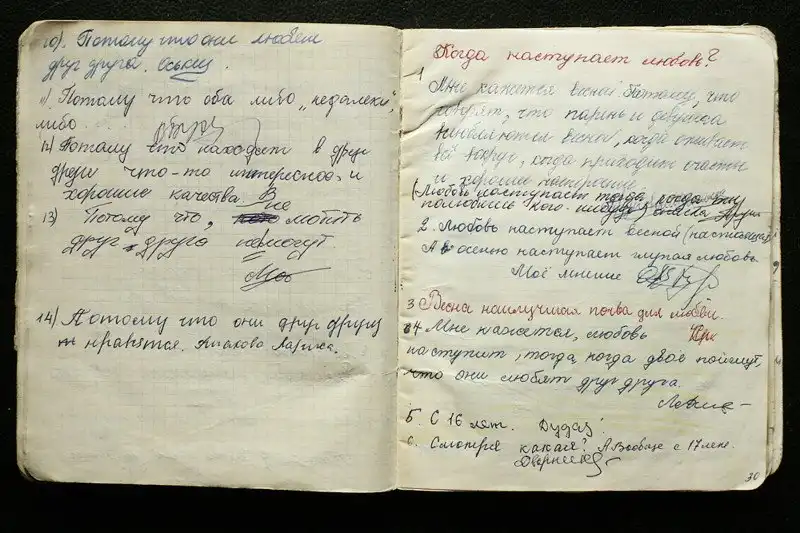 10). Потому что они любят
друг друга.
11). Потому что оба либо „недалеки",
либо . . .
12) Потому что находят в друг
друге что-то интересное и
хорошие качества.
13) Потому что, не любить
друг друга не могут
14) Потому что они друг другу
нравятся. Лариса.
Когда наступает любовь?
1 Мне кажется весной. Потому, что
говорят, что парень и девушка
влюбляются весной, когда оживает
всё вокруг, когда приходит счастье
и хорошее настроение.
(Любовь наступает тогда, когда ты
полюбишь кого-нибудь)
2. Любовь наступает весной (настоящая)
А осенью наступает глупая любовь
Моё мнение
3 Весна наилучшая почва для любви.
4. Мне кажется, любовь
наступит, тогда, когда двое поймут,
что они любят друг друга.
5 С 16 лет.
6. Смотря какая? А вообще с 17 лет.
30